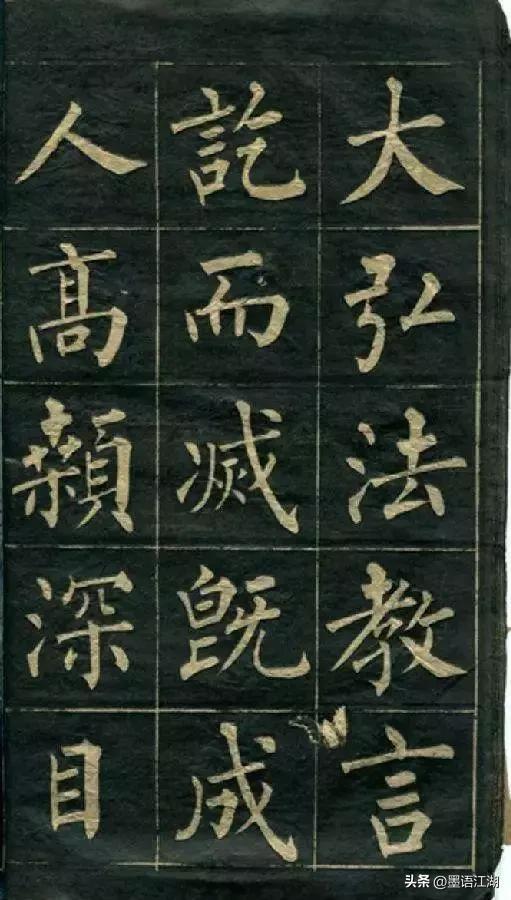 大弘法教言
訖而滅既成
人高顙深目
头条 @墨语江湖